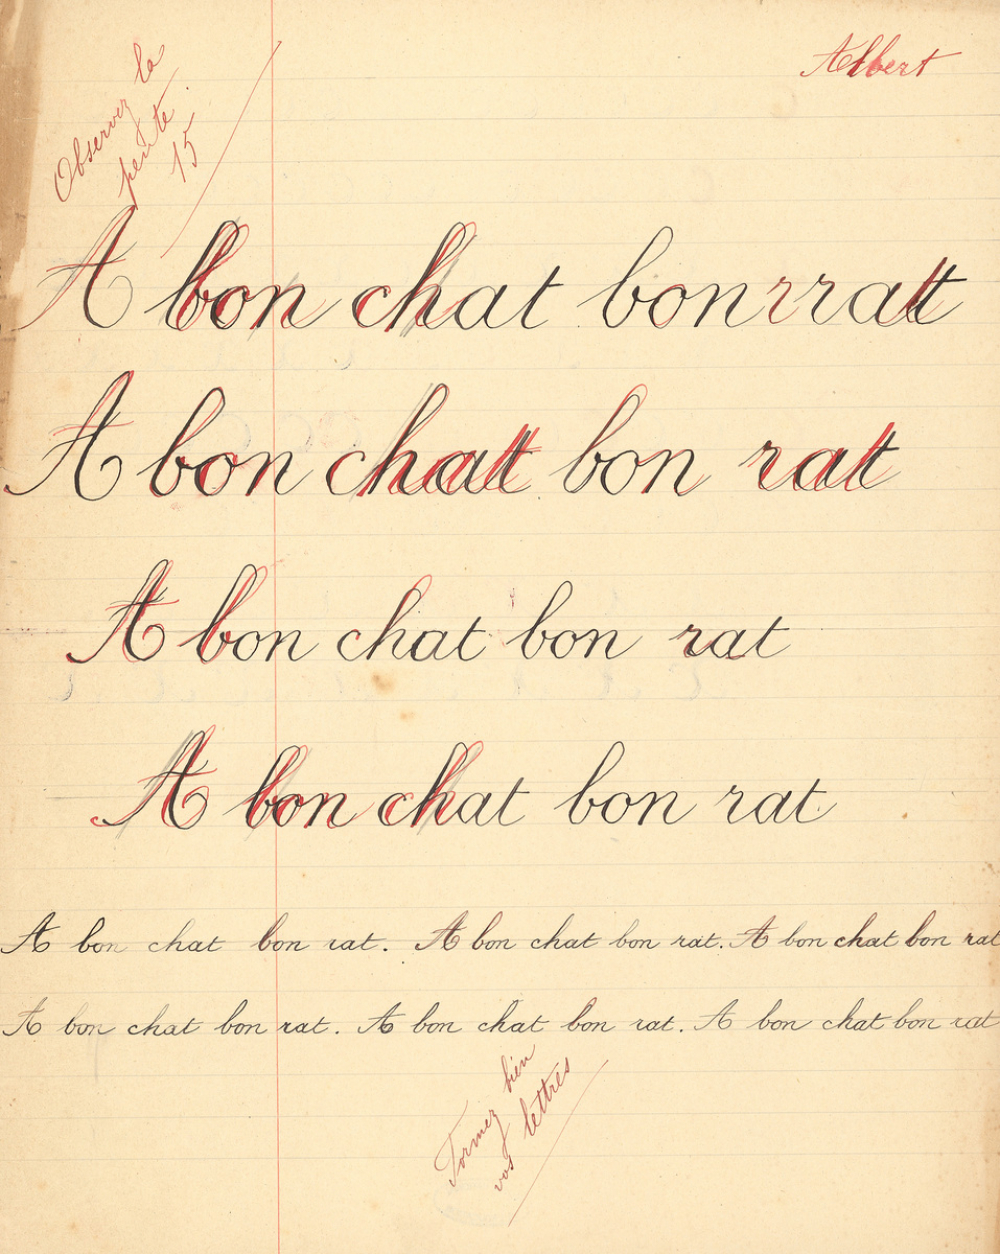 Albert
Observez la
pente
15
A bon chat bon rrat
A bon chat bon rat
A bon chat bon rat
A bon chat bon rat
A bon chat bon rat. A bon chat bon rat. A bon chat bon rat
A bon chat bon rat. A bon chat bon rat. A bon chat bon rat
Formez bien
vos lettres